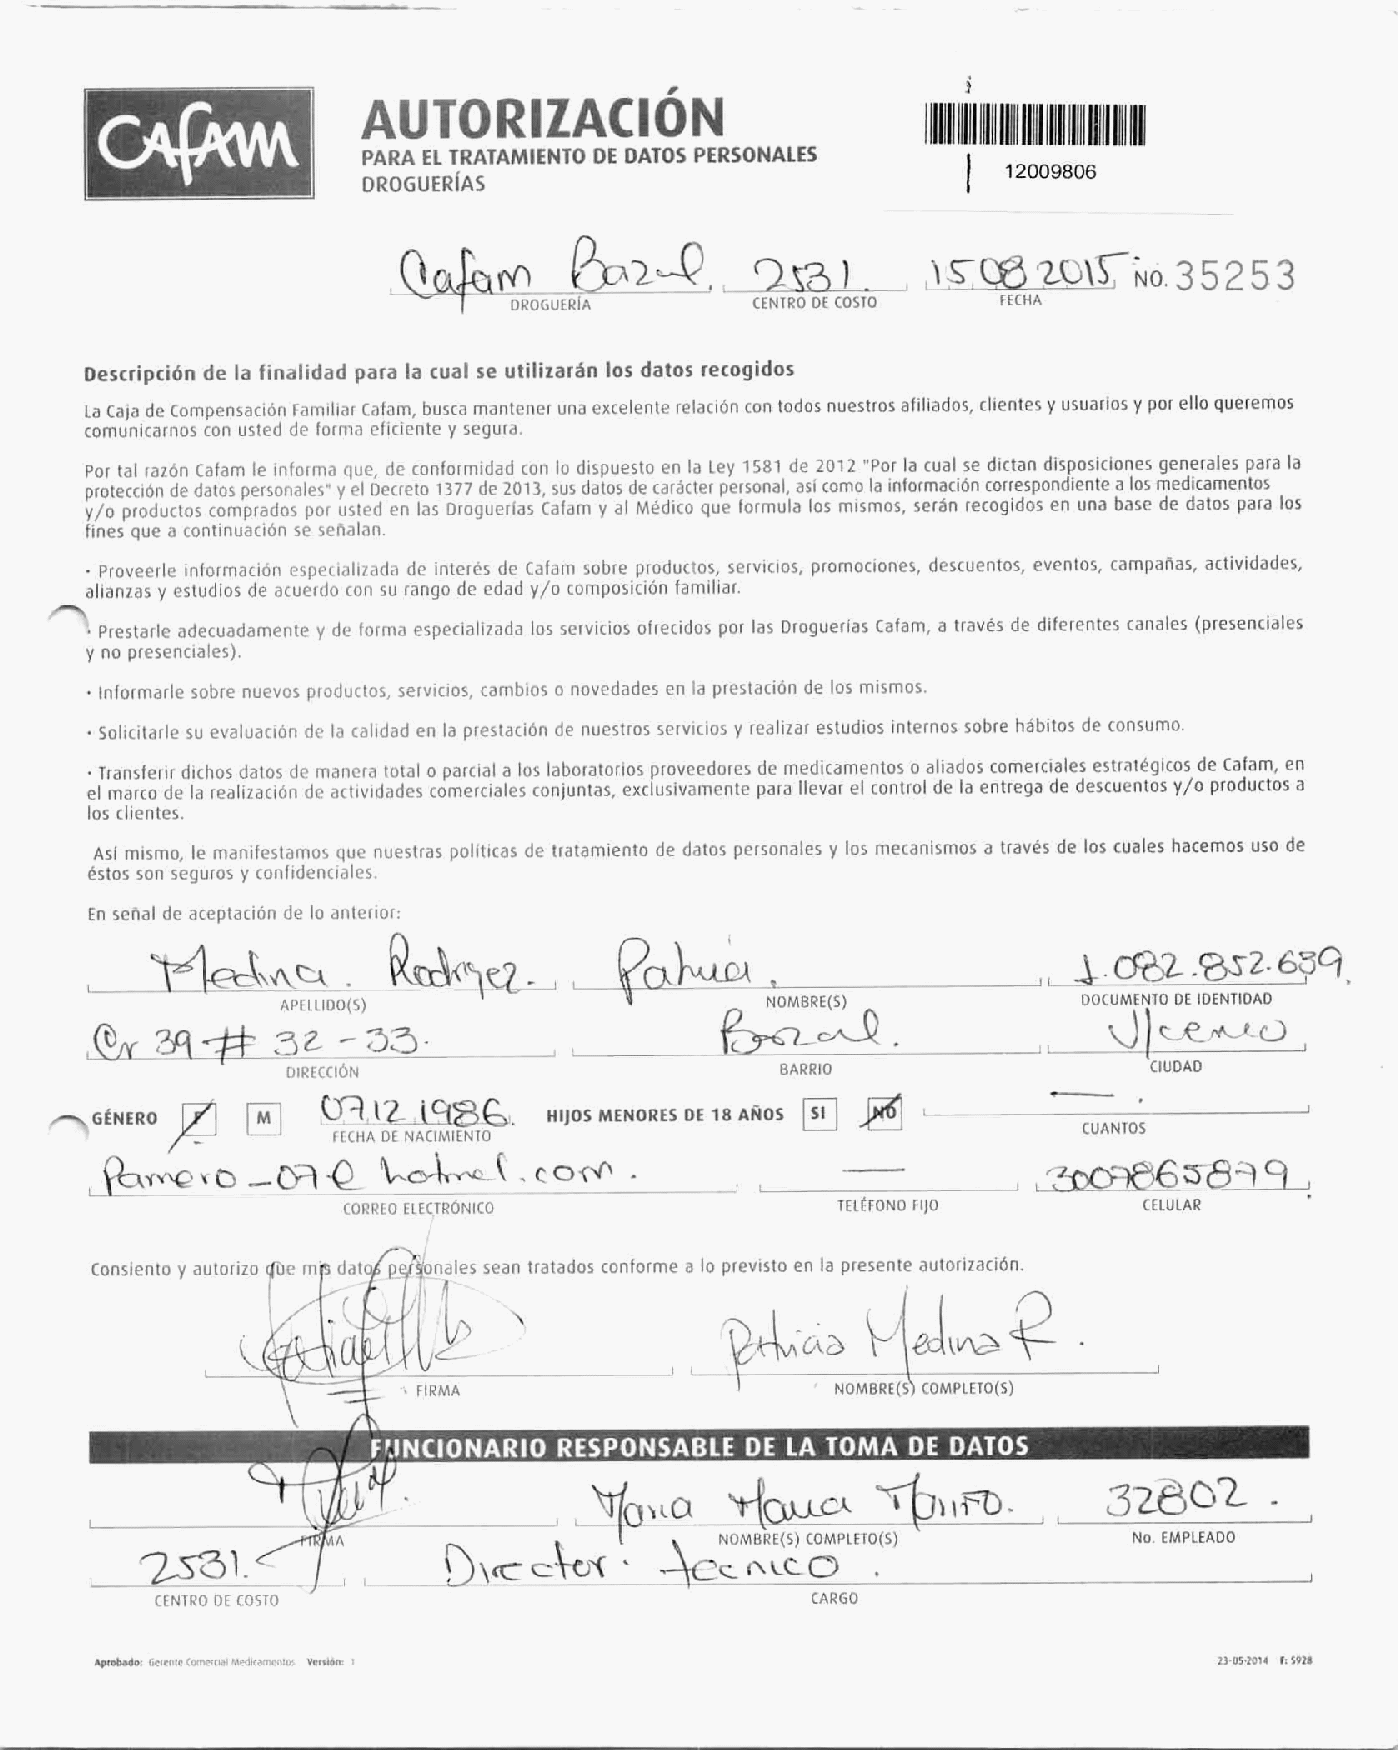 CAFAM
AUTORIZACIÓN
PARA EL TRATAMIENTO DE DATOS PERSONALES
DROGUERÍAS
12009806
Cafam Bazal. 2531. 15 08 2015 No. 35253
DROGUERÍA CENTRO DE COSTO FECHA
Descripción de la finalidad para la cual se utilizarán los datos recogidos
La Caja de Compensación Familiar Cafam, busca mantener una excelente relación con todos nuestros afiliados, clientes y usuarios y por ello queremos
comunicarnos con usted de forma eficiente y segura.
Por tal razón Cafam le informa que, de conformidad con lo dispuesto en la Ley 1581 de 2012 "Por la cual se dictan disposiciones generales para la
protección de datos personales" y el Decreto 1377 de 2013, sus datos de carácter personal, así como la información correspondiente a los medicamentos
y/o productos comprados por usted en las Droguerías Cafam y al Médico que formula los mismos, serán recogidos en una base de datos para los
fines que a continuación se señalan.
· Proveerle información especializada de interés de Cafam sobre productos, servicios, promociones, descuentos, eventos, campañas, actividades,
alianzas y estudios de acuerdo con su rango de edad y/o composición familiar.
· Prestarle adecuadamente y de forma especializada los servicios ofrecidos por las Droguerías Cafam, a través de diferentes canales (presenciales
y no presenciales).
· Informarle sobre nuevos productos, servicios, cambios o novedades en la prestación de los mismos.
· Solicitarle su evaluación de la calidad en la prestación de nuestros servicios y realizar estudios internos sobre hábitos de consumo.
· Transferir dichos datos de manera total o parcial a los laboratorios proveedores de medicamentos o aliados comerciales estratégicos de Cafam, en
el marco de la realización de actividades comerciales conjuntas, exclusivamente para llevar el control de la entrega de descuentos y/o productos a
los clientes.
Así mismo, le manifestamos que nuestras políticas de tratamiento de datos personales y los mecanismos a través de los cuales hacemos uso de
éstos son seguros y confidenciales.
En señal de aceptación de lo anterior:
Medina. Rodrigez. 1.082.852.639
APELLIDO(S) NOMBRE(S) DOCUMENTO DE IDENTIDAD
Cr 39 # 32 - 33. Bozal. V/cencio
DIRECCIÓN BARRIO CIUDAD
GÉNERO F M 07 12 1986. HIJOS MENORES DE 18 AÑOS SI NO
FECHA DE NACIMIENTO CUANTOS
3007865879
CORREO ELECTRÓNICO TELÉFONO FIJO CELULAR
Consiento y autorizo que mis datos personales sean tratados conforme a lo previsto en la presente autorización.
Patricia Medina R.
FIRMA NOMBRE(S) COMPLETO(S)
FUNCIONARIO RESPONSABLE DE LA TOMA DE DATOS
Maria 32802.
FIRMA NOMBRE(S) COMPLETO(S) No. EMPLEADO
2531. Director tecnico.
CENTRO DE COSTO CARGO
Aprobado: Gerente Comercial Medicamentos Versión: 1 23-05-2014 F: 5928